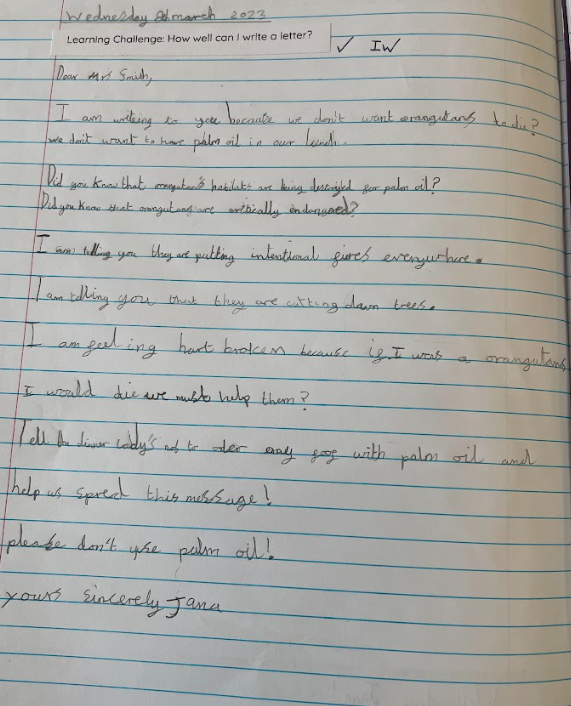 Wednesday march 2023
Learning Challenge: How well can I write a letter?
✓ IW
Dear Mrs Smith,
I am writing to you because we don't want orangutans to die?
we don't want to have palm oil in our lunch.
Did you know that orangutan's habitats are being destroyed for palm oil?
Did you know that orangutans are critically endangered?
I am telling you they are putting intentional fires everywhere.
I am telling you that they are cutting down trees.
I am feeling hart broken because if I was a orangutans
I would die we must help them?
Tell the dinner lady's not to oder any with palm oil and
help us spred this message!
please don't use palm oil!
yours sincerely Jana